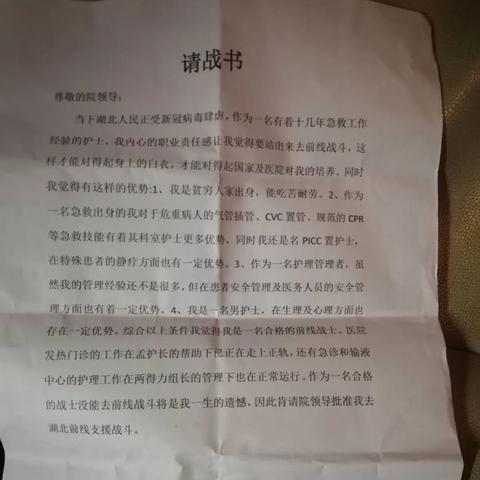 请战书
尊敬的院领导：
当下湖北人民正受新冠病毒肆虐，作为一名有着十几年急救工作
经验的护士，我内心的职业责任感让我觉得要站出来去前线战斗，这
样才能对得起身上的白衣，才能对得起国家及医院对我的培养。同时
我觉得有这样的优势:1、我是贫穷人家出身，能吃苦耐劳。2、作为
一名急救出身的我对于危重病人的气管插管、CVC 置管、规范的 CPR
等急救技能有着其科室护士更多优势，同时我还是名 PICC 置护士，
在特殊患者的静疗方面也有一定优势。3、作为一名护理管理者，虽
然我的管理经验还不是很多，但在患者安全管理及医务人员的安全管
理方面也有着一定优势。4、我是一名男护士，在生理及心理方面也
存在一定优势。综合以上条件我觉得我是一名合格的前线战士。医院
发热门诊的工作在孟护长的帮助下已正在走上正轨，还有急诊和输液
中心的护理工作在两得力组长的管理下也在正常运行。作为一名合格
的战士没能去前线战斗将是我一生的遗憾，因此肯请院领导批准我去
湖北前线支援战斗。